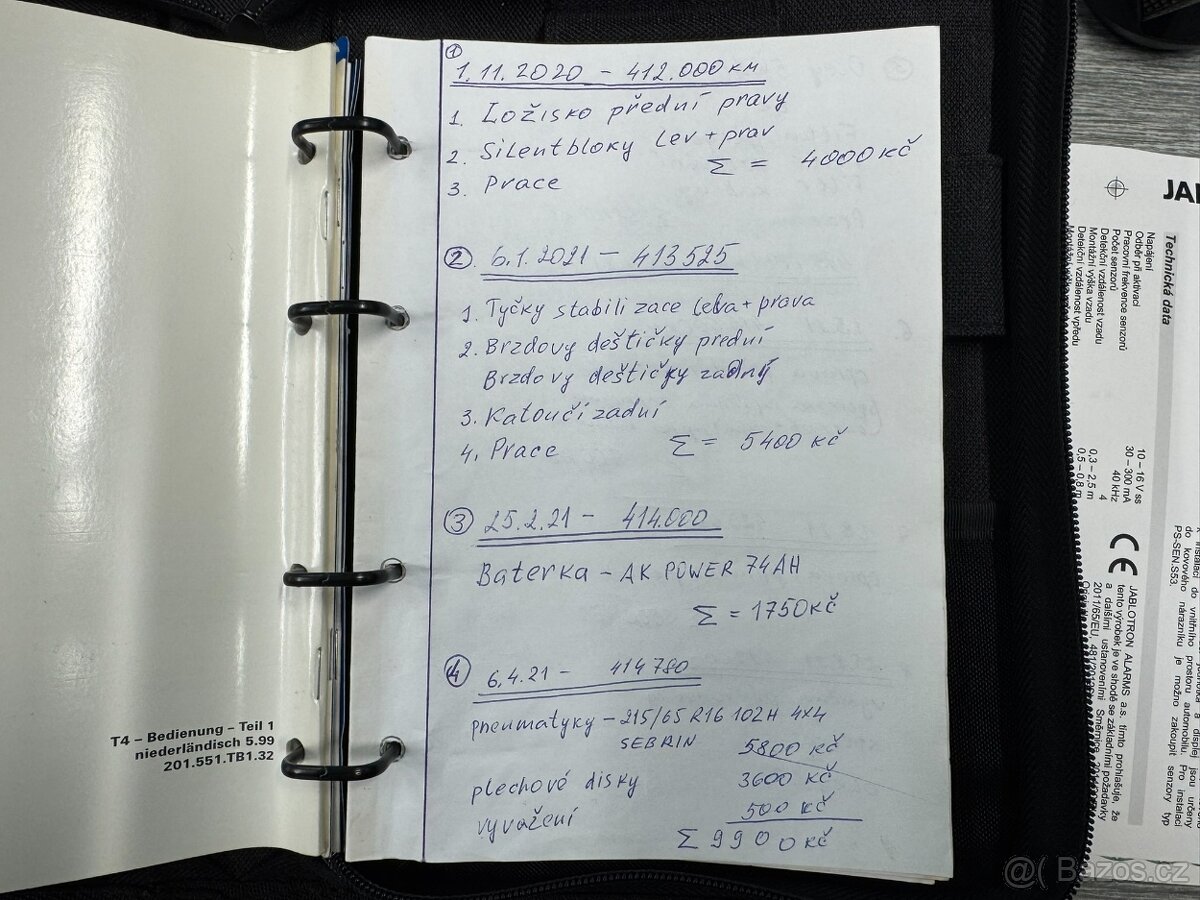 T4 – Bedienung – Teil 1
niederländisch 5.99
201.551.TB1.32
①
1.11.2020 – 412.000 км
1. Ložisko přední pravy
2. Silentbloky lev + prav
Σ = 4000 kč
3. Prace
② 6.1.2021 – 413525
1. Tyčky stabilizace leva + prava
2. Brzdovy deštičky prední
Brzdovy deštičky zadný
3. Katoučí zadní
4. Prace
Σ = 5400 kč
③ 25.2.21 – 414.000
Baterka – AK POWER 74AH
Σ = 1750 kč
④ 6.4.21 – 414780
pneumatyky – 215/65 R16 102H 4x4
SEBRIN 5800 kč
plechové disky 3600 kč
vyvažení 500 kč
Σ 9900 kč
JA
Technická data
Napájení 10 – 16 V ss
Odběr při aktivaci 30 – 300 mA
Pracovní frekvence senzorů 40 kHz
Počet senzorů 4
Detekční vzdálenost vzadu 0,3 – 2,5 m
Montážní výška vzadu
Detekční vzdálenost vpředu 0,5 – 0,8 m
CE
JABLOTRON ALARMS a.s. tímto prohlašuje, že
tento výrobek je ve shodě se základními požadavky
a dalšími ustanoveními Směrnice
2011/65/EU,
jsou určeny
k instalaci do vnitřního prostoru automobilu. Pro instalaci
do kovového nárazníku je možno zakoupit senzory typ
PS-SEN.S53.
@( Bazos.cz